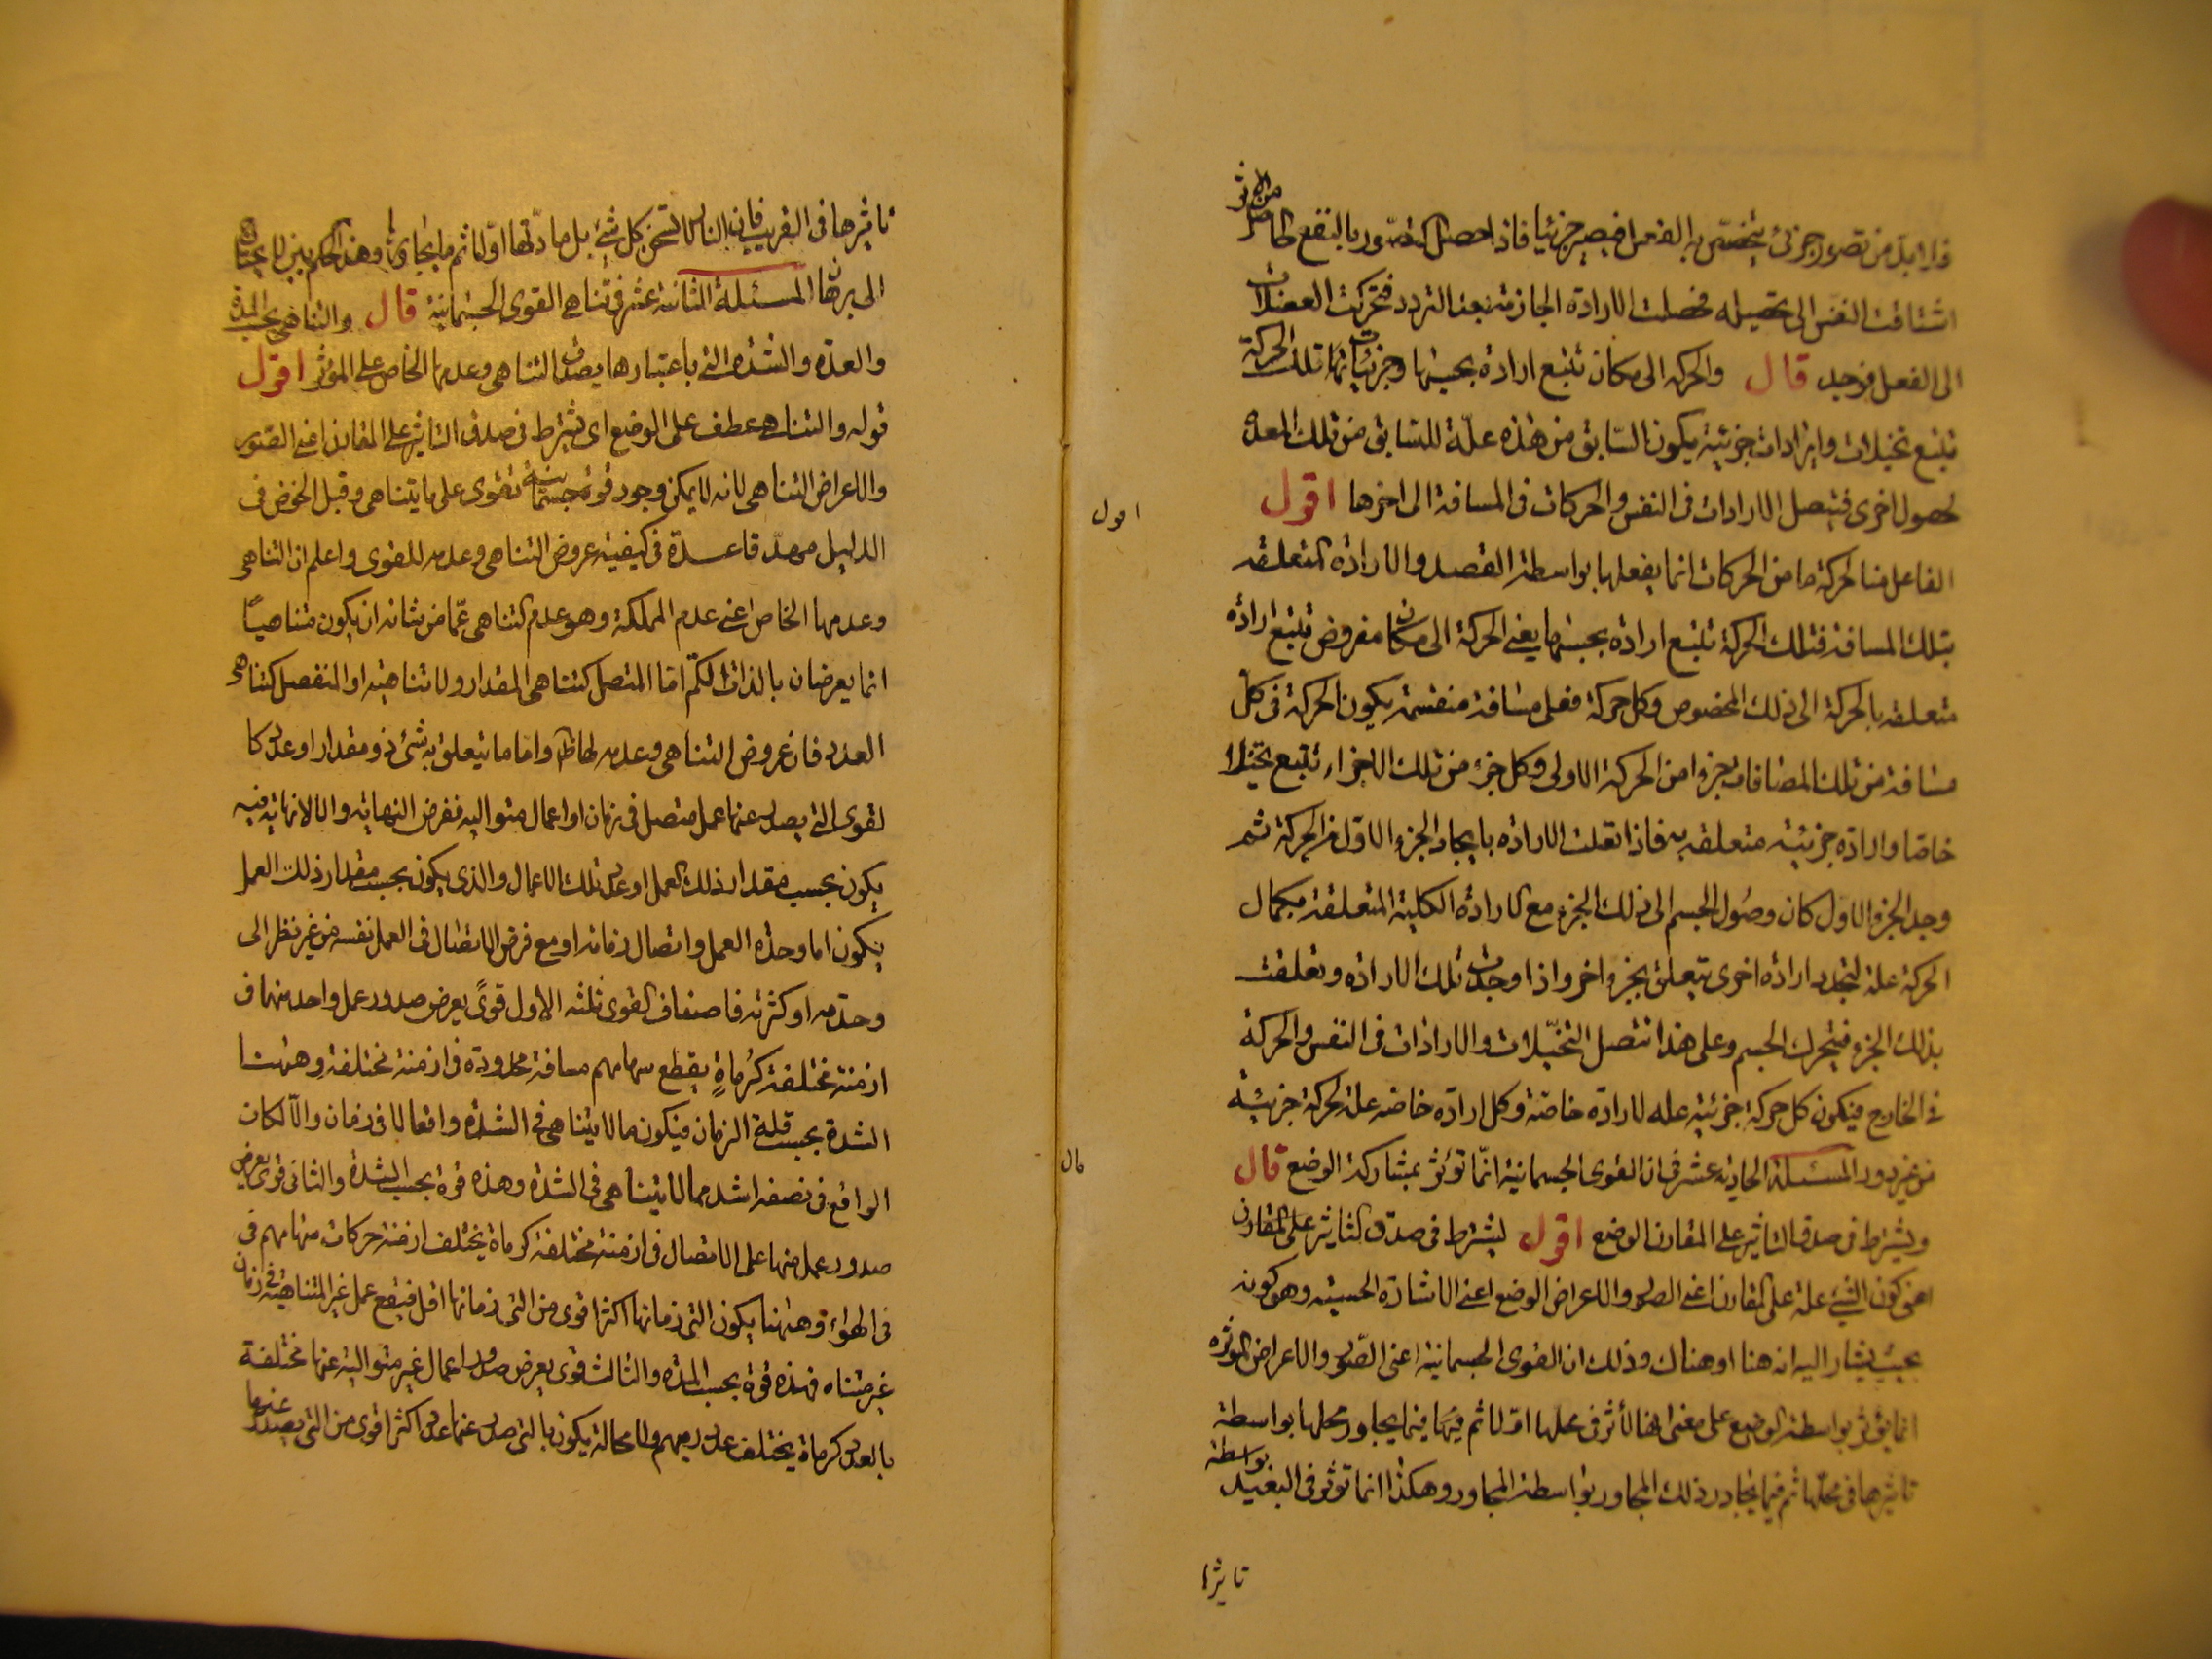 فلا بد من تصور جزئى يتخصص به الفعل فيصير جزئيا فاذا حصل التصور بالنفع الحاصل
من الاثر
اشتاقت النفس الى تحصيله فحصلت الارادة الجازمة بعد التردد فتحركت العضلات
الى الفعل فوجد قال والحركة الى مكان تتبع ارادة بحسبها وجزئيات تلك الحركة
تتبع تخيلات وارادات جزئية يكون السابق من هذه علة للسابق من تلك المعدة
لحصول اخرى فتتصل الارادات فى النفس والحركات فى المسافة الى اخرها اقول
الفاعل منا لحركة ما من الحركات انما يفعلها بواسطة القصد والارادة المتعلقة
بتلك المسافة فتلك الحركة تتبع ارادة بحسبها يعنى الحركة الى مكان مفروض تتبع ارادة
متعلقة بالحركة الى ذلك المخصوص وكل حركة فعلى مسافة منقسمة يكون الحركة فى كل
مسافة من تلك المسافات جزوا من الحركة الاولى وكل جزء من تلك الاجزاء تتبع تخيلا
خاصا وارادة جزئية متعلقة به فاذا تعلقت الارادة بايجاد الجزء الاول من الحركة ثم
وجد الجزء الاول كان وصول الجسم الى ذلك الجزء مع الارادة الكلية المتعلقة بكمال
الحركة علة لتجدد ارادة اخرى تتعلق بجزء اخر واذا وجدت تلك الارادة وتعلقت
بذلك الجزء فتحرك الجسم وعلى هذا تتصل التخيلات والارادات فى النفس والحركة
فى الخارج فيكون كل حركة جزئية علة لارادة خاصة وكل ارادة خاصة علة لحركة جزئية
من غير دور المسئلة الحادية عشر فى ان القوى الجسمانية انما تؤثر بمشاركة الوضع قال
ويشترط فى صدق التاثير على المقارن الوضع اقول يشترط فى صدق التاثير على المقارن
اعنى كون الشئ علة على المقارن اعنى الصور والاعراض الوضع اعنى الاشارة الحسية وهو كونه
بحيث يشار اليه انه هنا او هناك وذلك ان القوى الجسمانية اعنى الصور والاعراض المؤثرة
انما يؤثر بواسطة الوضع على معنى انها تاثر فى محلها اولا ثم فيما يجاور محلها بواسطة
تاثيرها فى محلها ثم فيما يجاور ذلك المجاور بواسطة المجاور وهكذا انما تؤثر فى البعيد بواسطة
تاثيرا
اقول
قال
تاثيرها فى القريب فان النار لا تسخن كل شئ بل ما لاقتها اولا ثم ما يجاوره وهذا الحكم بين لا يحتاج
الى برهان المسئلة الثانية عشر فى تناهى القوى الجسمانية قال والتناهى بحسب المدة
والعدة والشدة التى باعتبارها يصدق التناهى وعدمها الخاص على المؤثر اقول
قوله والتناهى عطف على الوضع اى يشترط فى صدق التاثير على المقارن اعنى الصور
والاعراض التناهى لانه لا يمكن وجود قوة جسمانية تقوى على ما يتناهى وقبل الخوض فى
الدليل مهد قاعدة فى كيفية عروض التناهى وعدمه للقوى واعلم ان التناهى
وعدمها الخاص اعنى عدم الملكة وهو عدم التناهى عما من شانه ان يكون متناهيا
انما يعرضان بالذات الكم اما المتصل كتناهى المقدار ولا تناهيه او المنفصل كتناهى
العدد فان عروض التناهى وعدمه لها ظاهر واما ما يتعلق به شئ ذو مقدار او عدد كا
لقوى التى يصدر عنها عمل متصل فى زمان او اعمال متوالية ففرض النهاية والا لانهاية فيه
يكون بحسب مقدار ذلك العمل او عدد تلك الاعمال والذى يكون بحسب مقدار ذلك العمل
يكون اما وحدة العمل واتصال زمانه او مع فرض الاتصال فى العمل نفسه من غير نظر الى
وحدته او كثرته فاصناف القوى ثلثه الاول قوى يعرض صدور عمل واحد منها فى
ازمنة مختلفة كرماة يقطع سهامهم مسافة محدودة فى ازمنة مختلفة وههنا
الشدة بحسب قلة الزمان فيكون ما لا يتناهى فى الشدة واقعا لا فى زمان والا لكان
الواقع فى نصفه اشد مما لا يتناهى فى الشدة وهذه قوة بحسب الشدة والثانى قوى يعرض
صدور عمل منها على الاتصال فى ازمنة مختلفة كرماة يختلف ازمنة حركات سهامهم فى
فى الهواء وههنا يكون التى زمانها اكثر اقوى من التى زمانها اقل فيقع عمل غير المتناهية فى زمان
غير متناه فهذه قوة بحسب المدة والثالث قوى يعرض صدور اعمال غير متوالية عنها مختلفة
بالعدد كرماة يختلف عدد رميهم ولا محالة يكون بالتى صدر عنها عدد اكثر اقوى من التى يصدر عنها